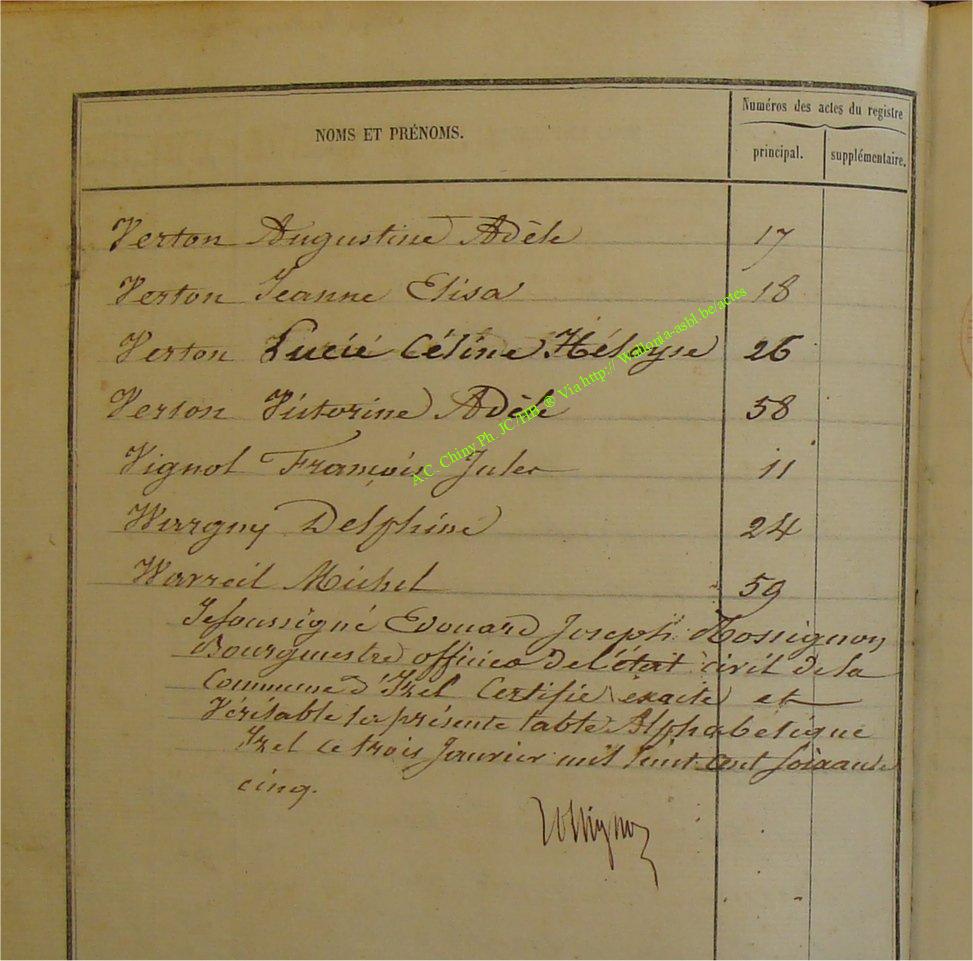 Numéros des actes du registre
NOMS ET PRÉNOMS.
principal. supplémentaire.
Verton Augustine Adèle 17
Verton Jeanne Elisa 18
Verton Lucie Céline Héloyse 26
Verton Victorine Adèle 58
Vignol François Jules 11
Wargny Delphine 24
Warzeil Michel 59
Je soussigné Edouard Joseph Rossignon
Bourgmestre officier de l'état civil de la
Commune d'Izel Certifie exacte et
Véritable la présente table Alphabétique
Izel ce trois Janvier mil huit cent soixante
cinq.
Rossignon
A.C. Chiny Ph. JC/HB ® Via http:// Wallonia-asbl.be/actes